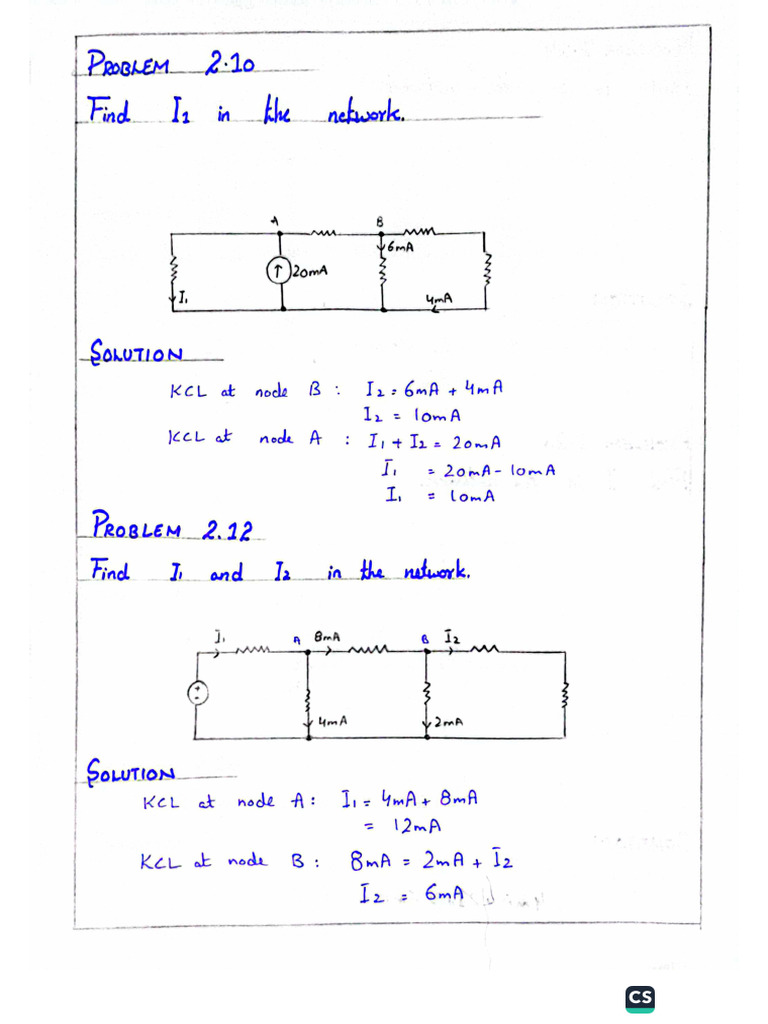 PROBLEM 2.10
Find I1 in the network.
A B
6mA
20mA
I1
4mA
SOLUTION
KCL at node B : I2 = 6mA + 4mA
I2 = 10mA
KCL at node A : I1 + I2 = 20mA
I1 = 20mA - 10mA
I1 = 10mA
PROBLEM 2.12
Find I1 and I2 in the network.
I1 A 8mA B I2
+
-
4mA 2mA
SOLUTION
KCL at node A : I1 = 4mA + 8mA
= 12mA
KCL at node B : 8mA = 2mA + I2
I2 = 6mA
CS